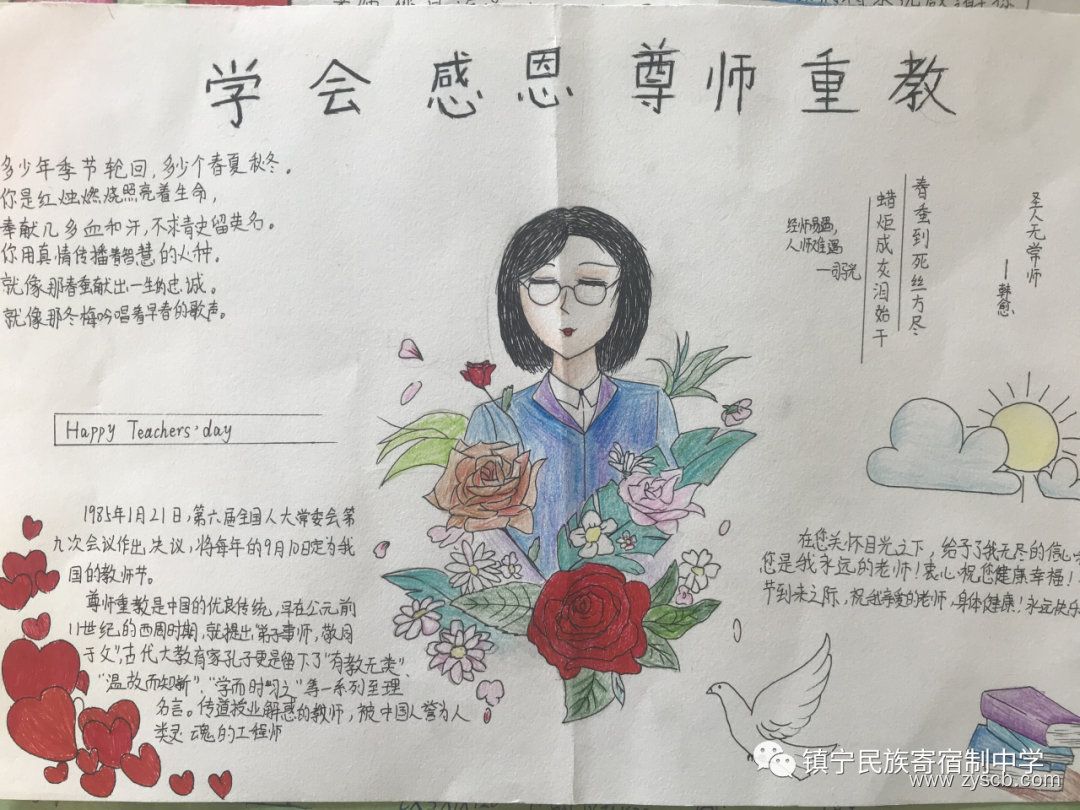 学会感恩 尊师重教
多少年季节轮回，多少个春夏秋冬。
你是红烛燃烧照亮着生命，
奉献几多血和汗，不求青史留英名。
你用真情传播着智慧的火种。
就像那春蚕献出一生的忠诚。
就像那冬梅吟唱着早春的歌声。
Happy Teachers' day
1985年1月21日，第六届全国人大常委会第
九次会议作出决议，将每年的9月10日定为我
国的教师节。
尊师重教是中国的优良传统，早在公元前
11世纪的西周时期，就提出"弟子事师，敬同
于父"，古代大教育家孔子更是留下了"有教无类"、
"温故而知新"、"学而时习之"等一系列至理
名言。传道授业解惑的教师，被中国人誉为人
类灵魂的工程师
经师易遇，
人师难遇
—司马光
春蚕到死丝方尽
蜡炬成灰泪始干
圣人无常师
—韩愈
在您关怀目光之下，给予了我无尽的信心
您是我永远的老师！衷心祝您健康幸福！
节到来之际，祝我亲爱的老师，身体健康！永远快乐
镇宁民族寄宿制中学
www.zyscb.com